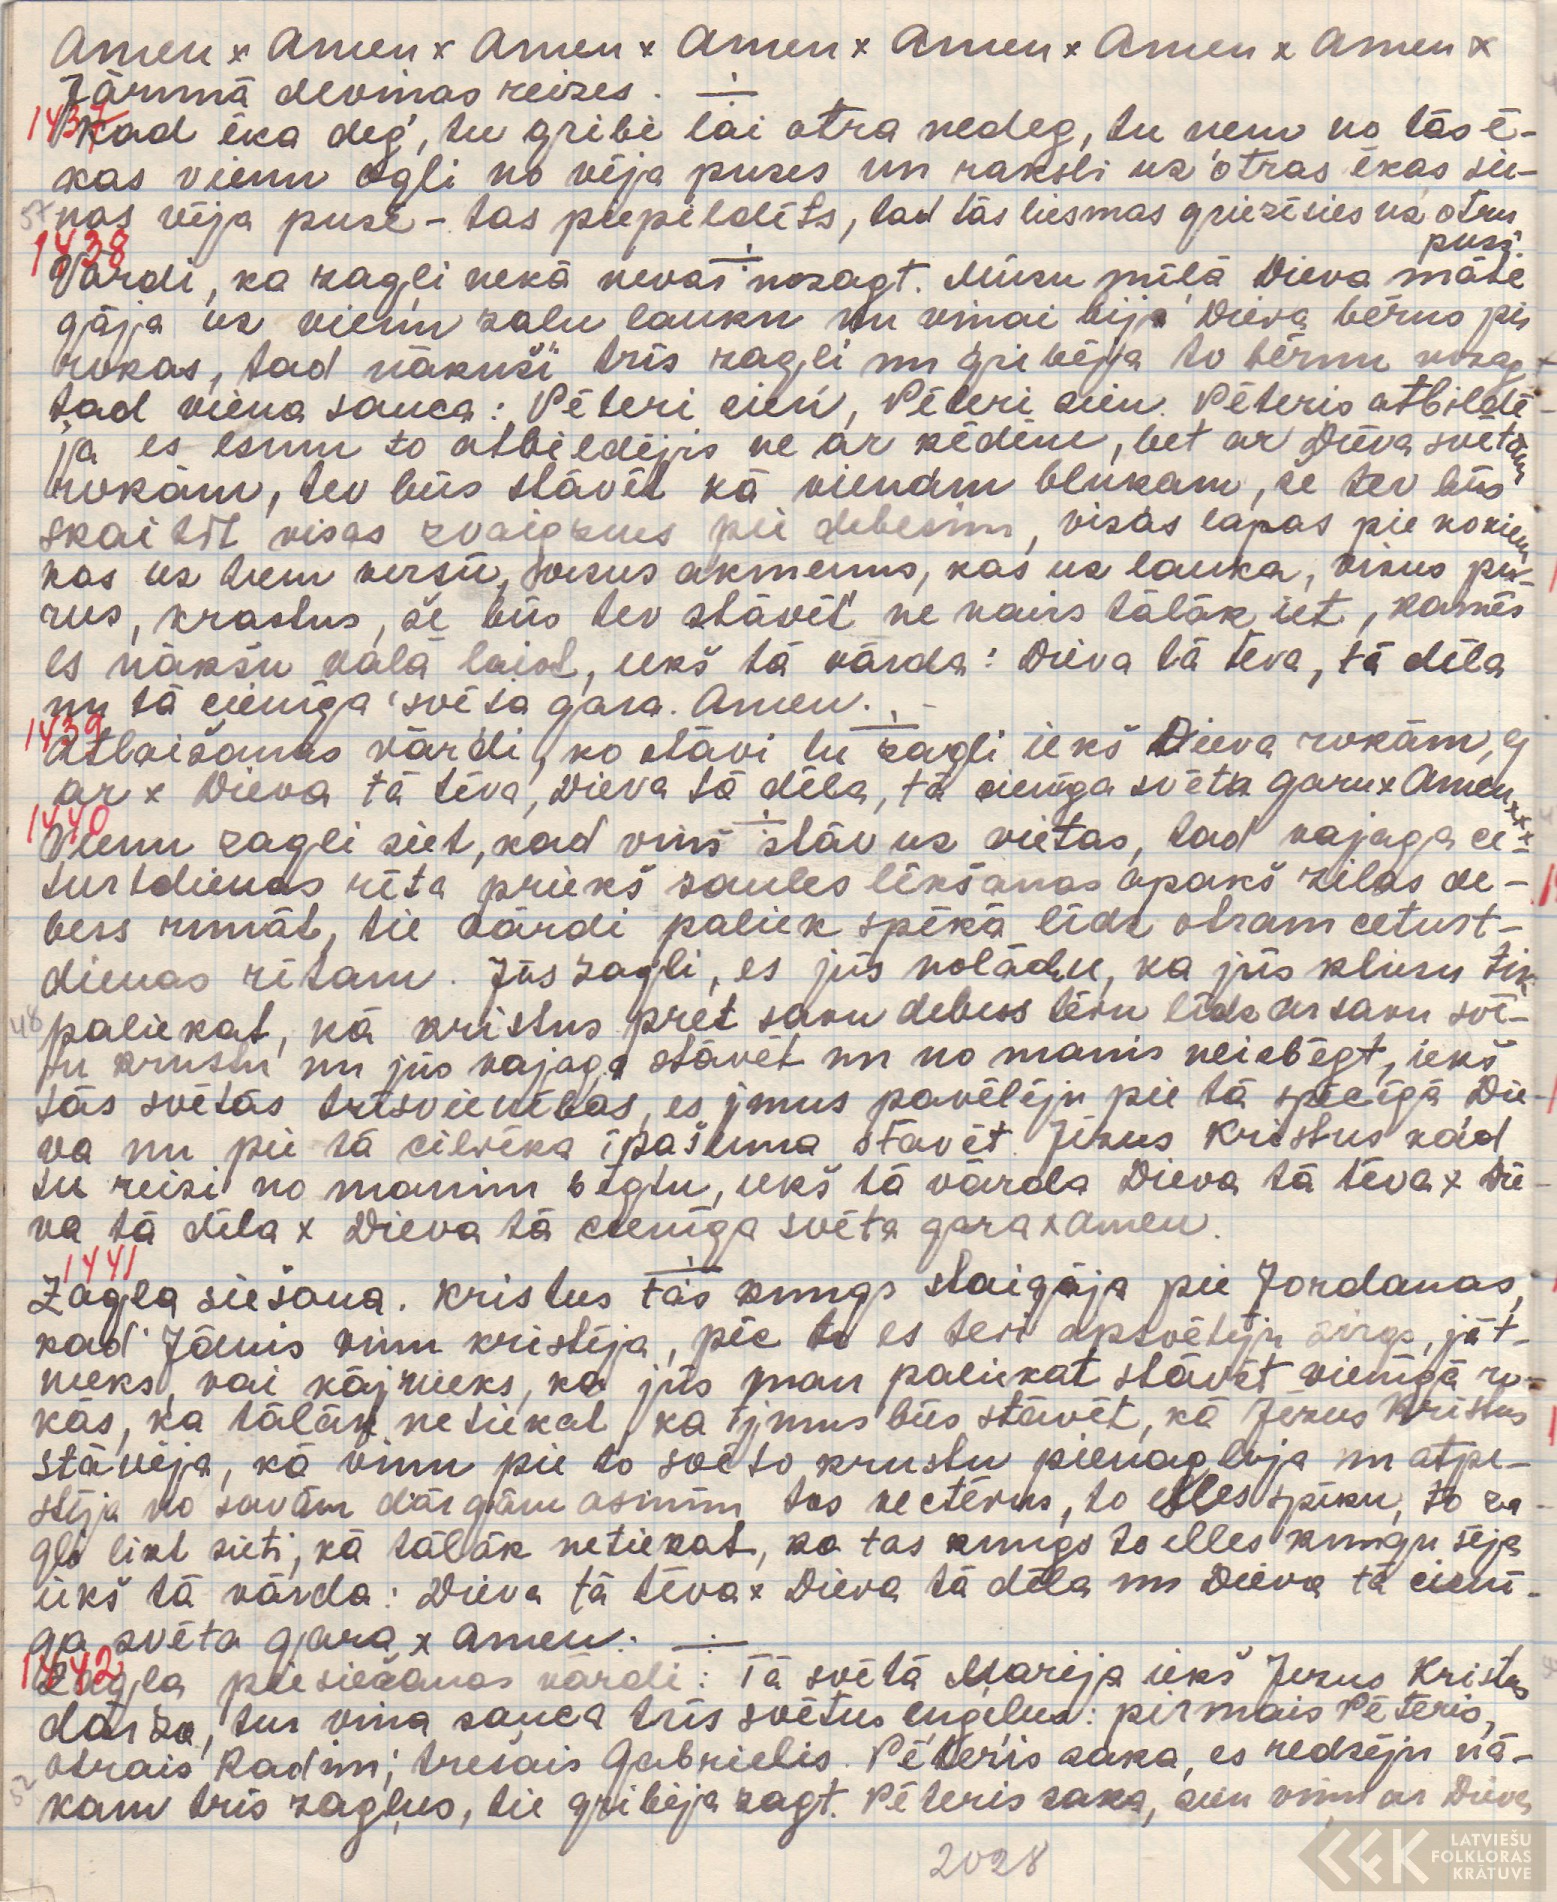 Amen x Amen x Amen x Amen x Amen x Amen x Amen x
Jārunā deviņas reizes.
1437
Kad ēka deg, tu gribi lai otra nedeg, tu ņem no tās ē-
kas vienu ogli no vēja puses un raksti uz otras ēkas sie-
nas vēja pusē – tas piepildīts, tad tās liesmas griezīsies uz otru
pusi.
1438
Vārdi, ka zagļi nekā nevar nozagt. Mūsu mīļā Dieva māte
gāja uz vienu zaļu lauku un viņai bija Dieva bērns pie
rokas, tad nākuši trīs zagļi un gribēja to bērnu nozag-
tad viena sauca: Pēteri sien, Pēteri sien. Pēteris atbildē-
ja es esmu to atbildējis ne ar ķēdēm, bet ar Dieva svētām
rokām, tev būs stāvēt kā vienam blukam, še tev būs
skaitīt visas zvaigznes pie debesīm, visas lapas pie kokiem
kas uz tiem virsū, visus akmeņus, kas uz lauka, visus pu-
rus, krastus, še būs tev stāvēt ne vairs tālāk iet, kamēs
es nākšu vaļā laist, iekš tā vārda: Dieva tā tēva, tā dēla
un tā cienīga svēta gara. Amen.
1439
Atlaišanas vārdi, ko stāvi tu zagli iekš Dieva rokām, g
ar x Dieva tā tēva, Dieva tā dēla, tā cienīga svēta garu x Amen x x x
1440
Vienu zagli siet, kad viņš stāv uz vietas, tad vajaga ce-
turtdienas rīta priekš saules lēkšanas apakš zilas de-
bess runāt, tie vārdi paliek spēkā līdz otram ceturt-
dienas rītam. Jūs zagļi, es jūs nolādu, ka jūs klusu tik
paliekat, kā kristus pret savu debess tēvu līdz ar savu svē-
tu krustu un jūs vajaga stāvēt un no manis neizbēgt, iekš
tās svētās trīsvienības, es jums pavēlēju pie tā spēcīgā Die-
va un pie tā cilvēka īpašuma stāvēt Jēzus Kristus kad
tu reizi no manim bēgtu, iekš tā vārda Dieva tā tēva x Die-
va tā dēla x Dieva tā cienīga svēta gara x amen.
1441
Zagļa siešana. Kristus tas kungs staigāja pie Jordanas,
kad Jānis viņu kristīja, pēc to es tevi apsvētīju zirgs, jāt-
nieks, vai kājnieks, ka jūs man paliekat stāvēt vienīgā ro-
kās, ka tālāk netiekat, ka jums būs stāvēt, kā Jēzus Kristus
stāvēja, kā viņu pie to svēto krustu pienagloja un atpe-
stīja no savām dārgām asinīm tos vectēvus, to elles spēku, to za-
gli likt sieti, kā tālāk netiekat, ka tas kungs to elles kungu sēja
iekš tā vārda: Dieva tā tēva x Dieva tā dēla un Dieva tā cienī-
ga svēta gara x amen.
1442
Zagļa piesiešanas vārdi: Tā svētā Marija iekš Jezus Kristus
dārza, tur viņa sauca trīs svētus eņģeļus: pirmais Pēteris,
otrais Radim; trešais Gabrielis. Pēteris saka, es redzēju nā-
kam trīs zagļus, tie gribēja zagt. Pēteris saka, sien viņu ar Dieva
2028
LATVIEŠU
FOLKLORAS
KRĀTUVE